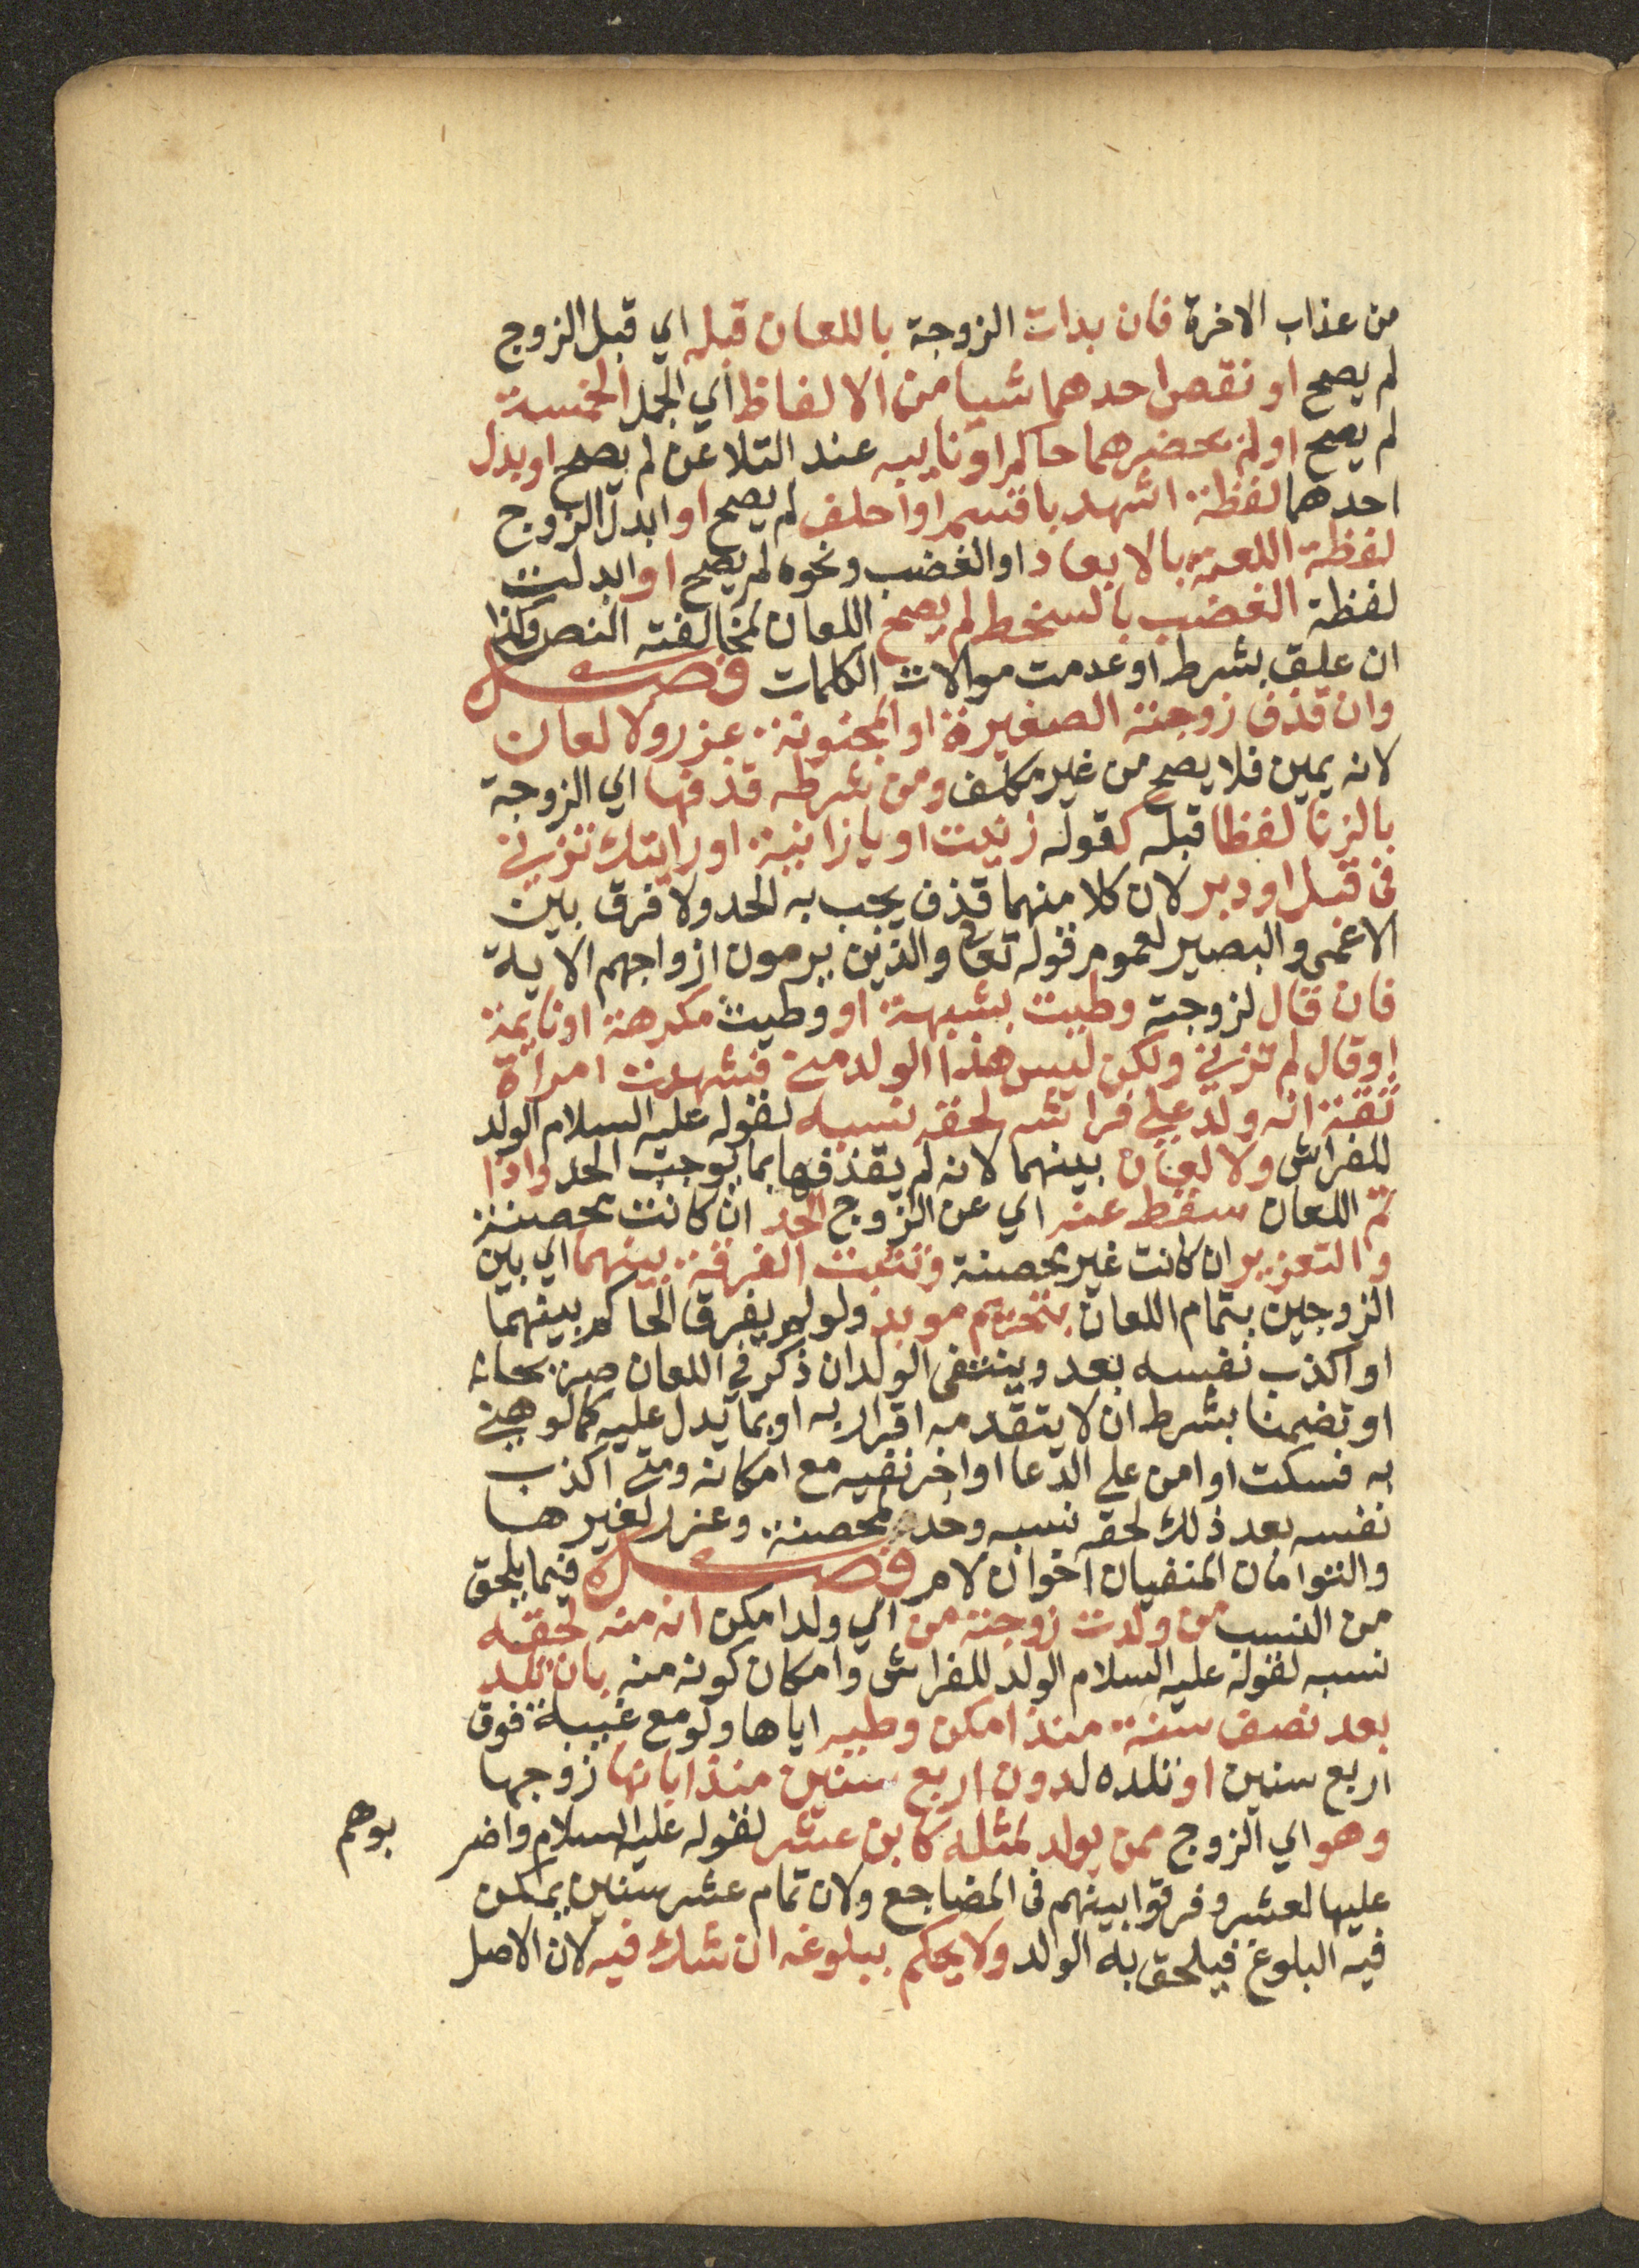 من عذاب الاخرة فان بدات الزوجة باللعان قبله اي قبل الزوج
لم يصح او نقص احدهما شيا من الالفاظ اي الجمل الخمسة
لم يصح او لم يحضرهما حاكم او نايبه عند التلاعن لم يصح او بدل
احدهما لفظة اشهد باقسم او احلف لم يصح او ابدل الزوج
لفظة اللعنة بالابعاد او الغضب ونحوه لم يصح او ابدلت
لفظة الغضب بالسخط لم يصح اللعان لمخالفته النص وكذا
ان علق بشرط او عدمت موالات الكلمات فصل
وان قذف زوجته الصغيرة او المجنونة عزر ولا لعان
لانه يمين فلا يصح من غير مكلف ومن شرطه قذفها اي الزوجة
بالزنا لفظا قبله كقوله زنيت او يا زانية او رايتك تزني
في قبل او دبر لان كلا منهما قذف يجب به الحد ولا فرق بين
الاعمى والبصير لعموم قوله تعالى والذين يرمون ازواجهم الاية
فان قال لزوجته وطيت بشبهة او وطيت مكرهة او نايمة
او قال لم تزني ولكن ليس هذا الولد مني فشهدت امراة
ثقة انه ولد على فراشه لحقه نسبه لقوله عليه السلام الولد
للفراش ولا لعان بينهما لانه لم يقذفها بما يوجب الحد واذا
تم اللعان سقط عنه اي عن الزوج الحد ان كانت محصنة
والتعزير ان كانت غير محصنة وتثبت الفرقة بينهما اي بين
الزوجين بتمام اللعان بتحريم موبد ولو لم يفرق الحاكم بينهما
او اكذب نفسه بعد وينتفى الولد ان ذكر في اللعان صريحا
او تضمنا بشرط ان لا يتقدمه اقرار به او بما يدل عليه كما لو هني
به فسكت او امن على الدعا او اخر نفيه مع امكانه ومتى اكذب
نفسه بعد ذلك لحقه نسبه وحد لمحصنة وعزر لغيرها
والتوامان المنفيان اخوان لام فصل فيما يلحق
من النسب من ولدت زوجته من اي ولدا امكن انه منه لحقه
نسبه لقوله عليه السلام الولد للفراش وامكان كونه منه بان تلد
بعد نصف سنة منذ امكن وطيه اياها ولو مع غيبة فوق
اربع سنين او تلده لدون اربع سنين منذ ابانها زوجها
وهو اي الزوج ممن يولد لمثله كابن عشر لقوله عليه السلام واضر
بوهم
عليها لعشر وفرقوا بينهم في المضاجع ولان تمام عشر سنين يمكن
فيه البلوغ فيلحق به الولد ولا يحكم ببلوغه ان شك فيه لان الاصل